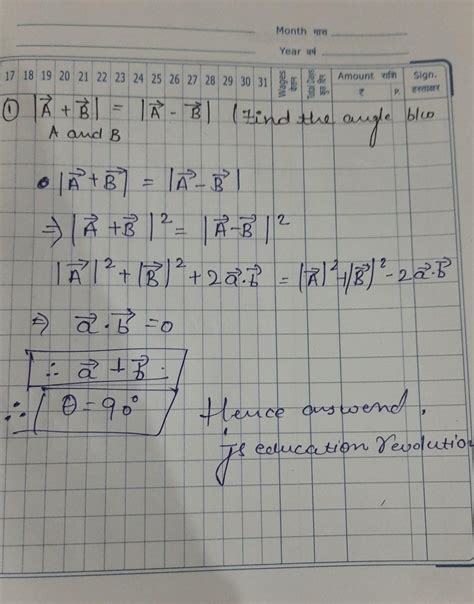 Month मास
Year वर्ष
17 18 19 20 21 22 23 24 25 26 27 28 29 30 31 Wages वेतन Total Days कुल दिन Amount राशि ₹ P. Sign. हस्ताक्षर
① |A⃗ + B⃗| = |A⃗ - B⃗| (Find the angle b/w
A and B
• |A⃗ + B⃗| = |A⃗ - B⃗|
⇒ |A⃗ + B⃗|² = |A⃗ - B⃗|²
|A⃗|² + |B⃗|² + 2a⃗.b⃗ = |A⃗|² + |B⃗|² - 2a⃗.b⃗
⇒ a⃗ . b⃗ = 0
∴ a⃗ ⊥ b⃗ .
∴ θ = 90°
Hence answend.
Js education revolution